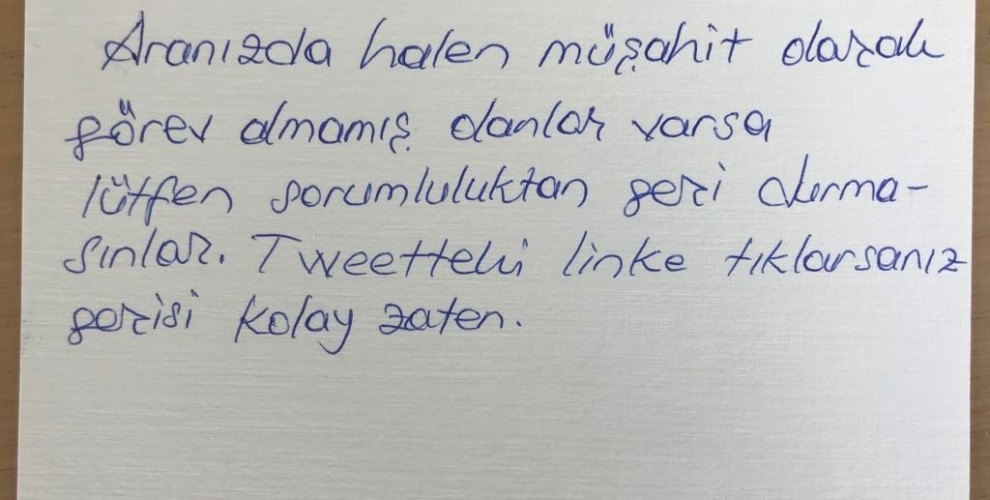 Aranızda halen müşahit olarak
görev almamış olanlar varsa
lütfen sorumluluktan geri durma-
sınlar. Tweetteki linke tıklarsanız
gerisi kolay zaten.